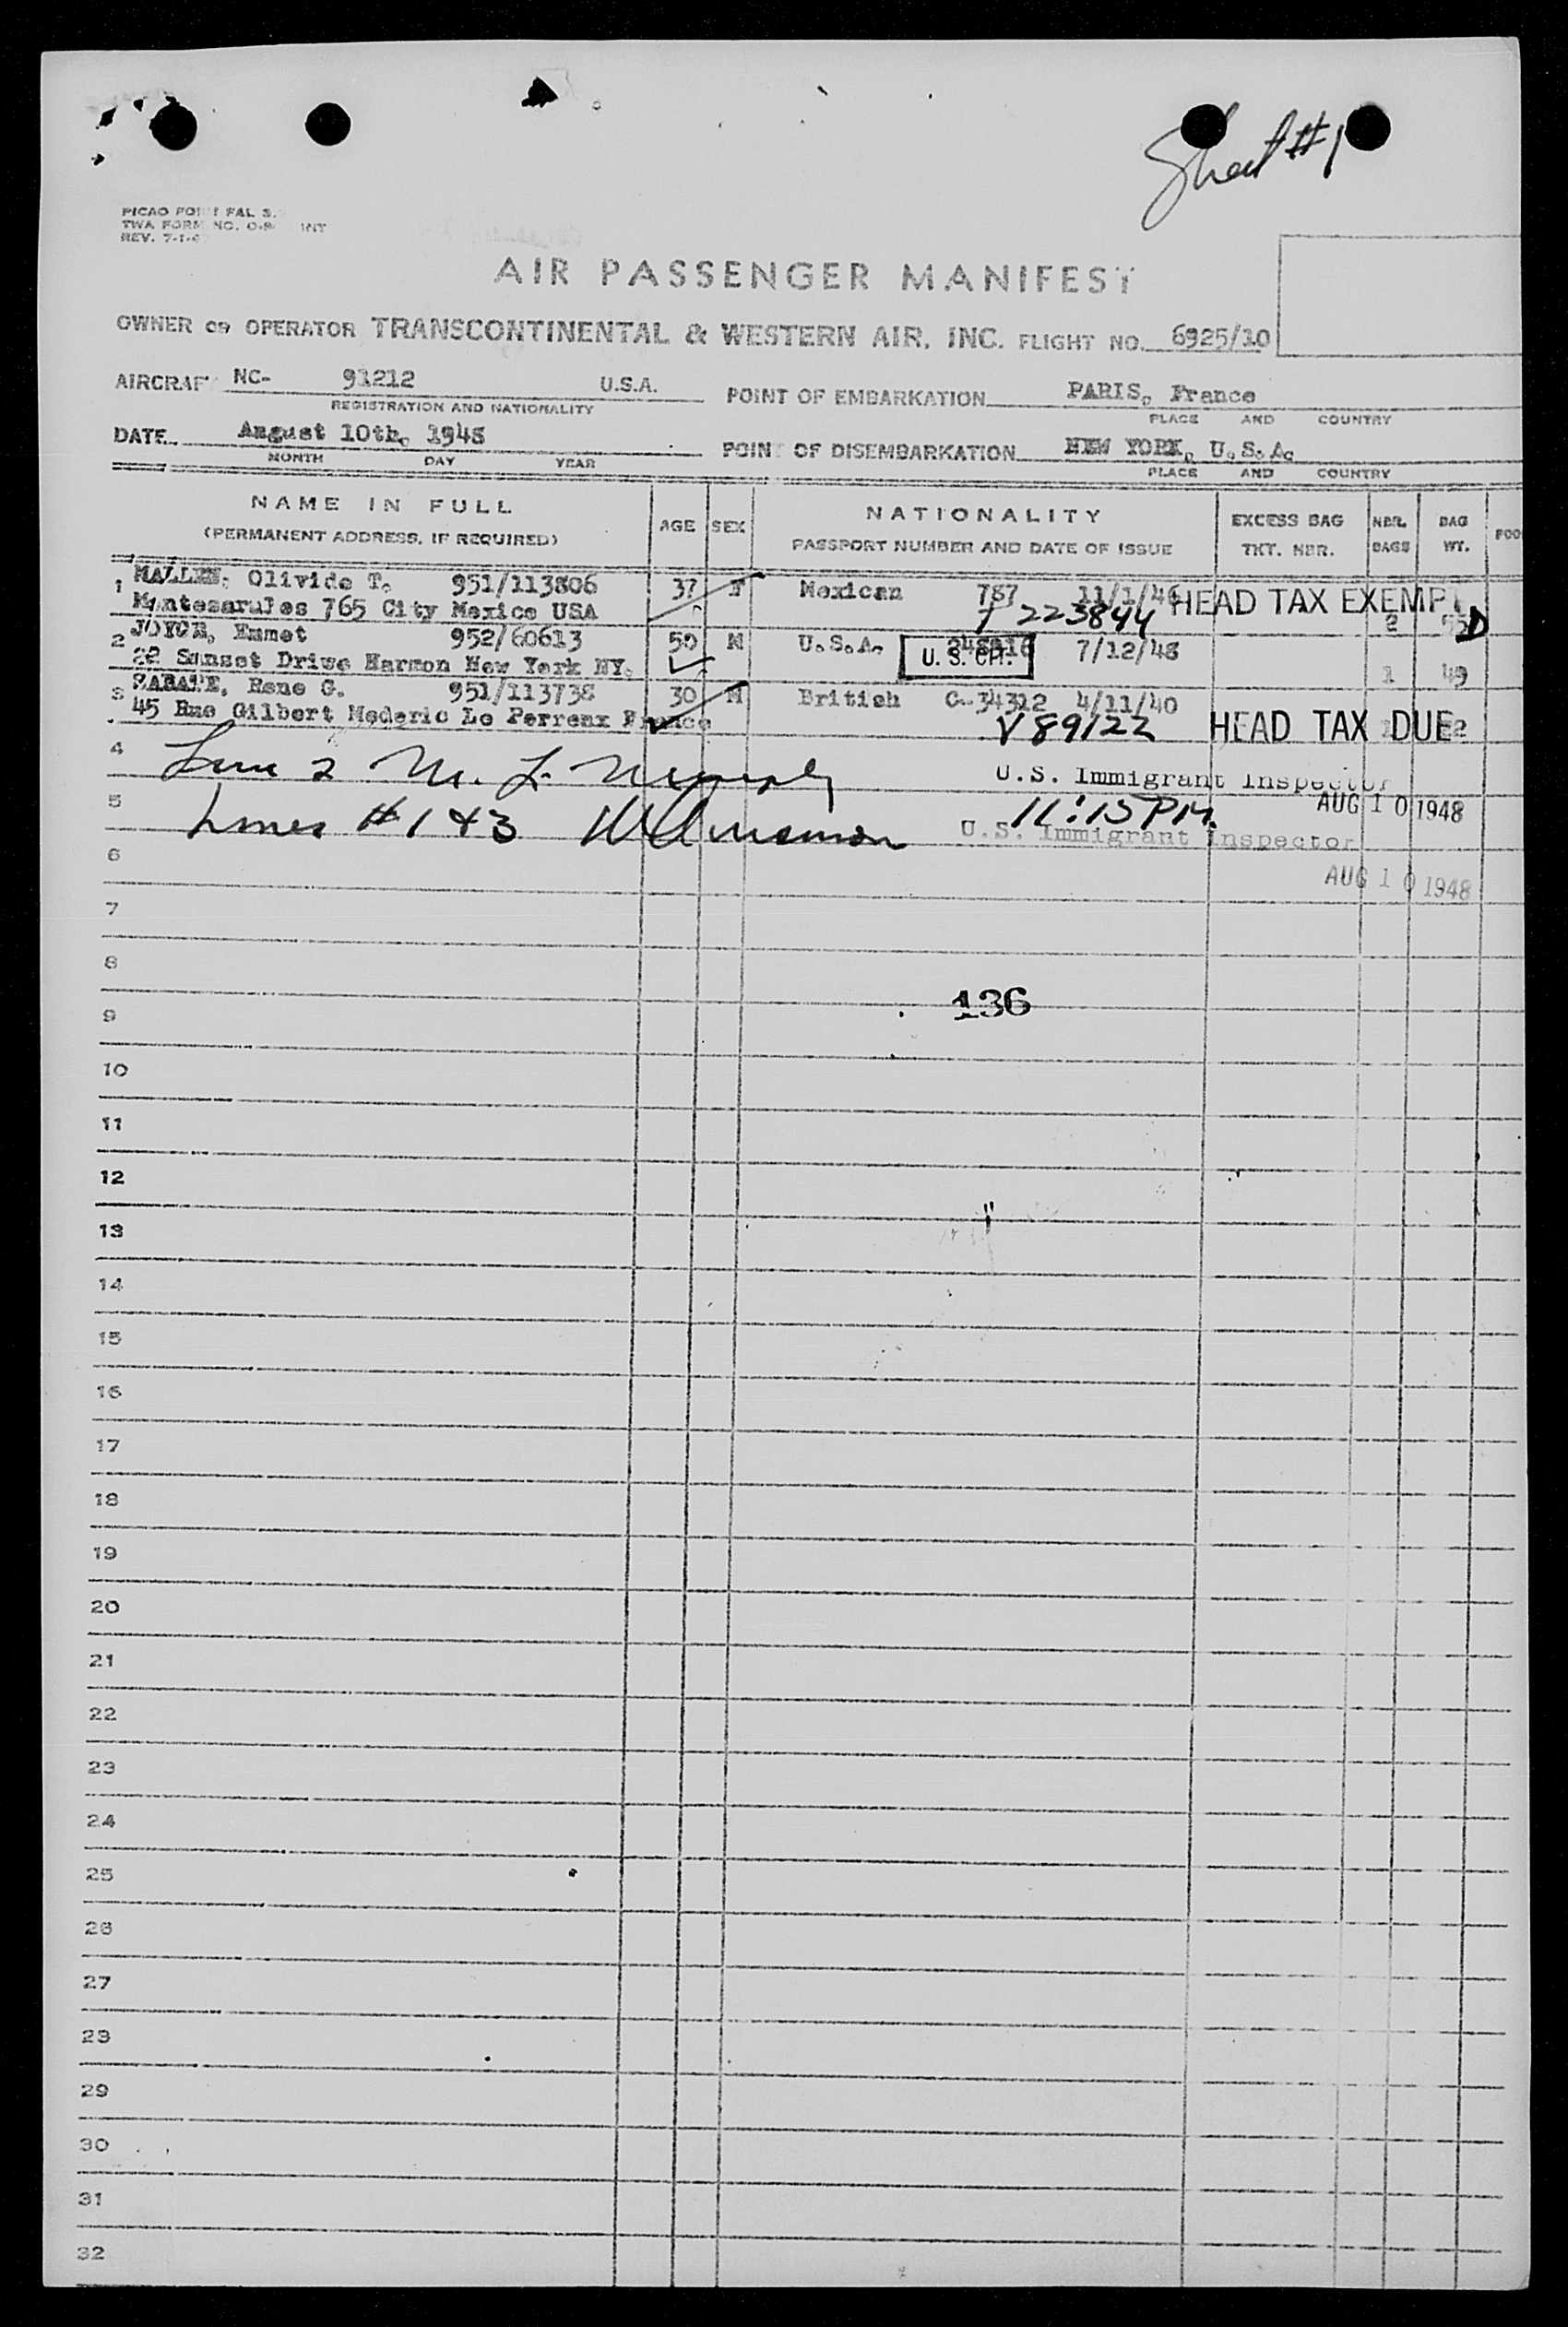 Sheet #1
TWA FORM NO.
INT
REV. 7-1-
AIR PASSENGER MANIFEST
OWNER OR OPERATOR TRANSCONTINENTAL & WESTERN AIR, INC. FLIGHT NO. 6925/10
AIRCRAF NC- 91212 U.S.A. POINT OF EMBARKATION PARIS, France
REGISTRATION AND NATIONALITY PLACE AND COUNTRY
DATE August 10th, 1948 POINT OF DISEMBARKATION NEW YORK, U.S.A.
MONTH DAY YEAR PLACE AND COUNTRY
NAME IN FULL AGE SEX NATIONALITY EXCESS BAG NBR. BAG
(PERMANENT ADDRESS, IF REQUIRED) PASSPORT NUMBER AND DATE OF ISSUE TKT. NBR. BAGS WT.
1 MALLEN, Olivide T. 951/113806 37 F Mexican 787 11/1/46 HEAD TAX EXEMPT
765 City Mexico USA T 223844 2 D
2 JOYCE, Emmet 952/60613 50 M U.S.A. U.S. CIT. 7/12/48
22 Sunset Drive Harmon New York NY. 1 49
3 Rene G. 951/113738 30 M British C-34312 4/11/40
45 Rue Gilbert Mederic Le Perreux France V 89122 HEAD TAX DUE
4 Line 2 M. L. U.S. Immigrant Inspector
5 AUG 10 1948
Lines #1 & 3 11:15 PM. U.S. Immigrant Inspector
6
AUG 10 1948
7
8
136
9
10
11
12
13
14
15
16
17
18
19
20
21
22
23
24
25
26
27
28
29
30
31
32